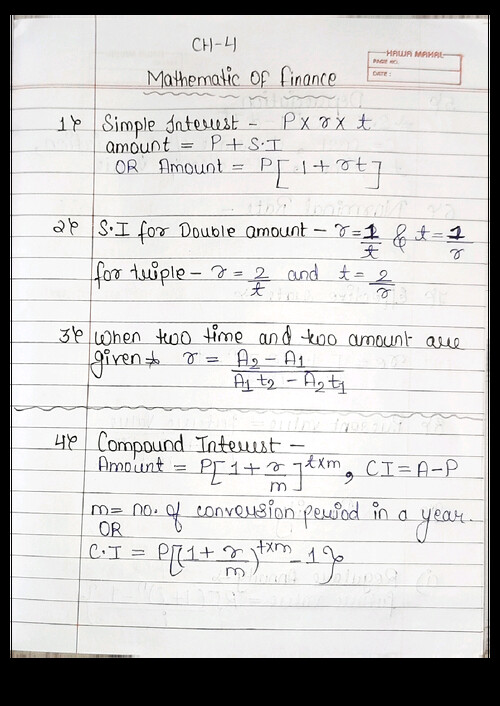 CH-4
HAWA MAHAL
PAGE NO.:
DATE :
Mathematic Of finance
1) Simple Interest - P x r x t
amount = P + S.I
OR Amount = P[1 + rt]
2) S.I for Double amount - r = 1/t & t = 1/r
for triple - r = 2/t and t = 2/r
3) When two time and two amount are
given → r = A2 - A1 / A1 t2 - A2 t1
4) Compound Interest -
Amount = P[1 + r/m]^txm, CI = A-P
m = no. of conversion period in a year.
OR
C.I = P[(1 + r/m)^txm - 1}